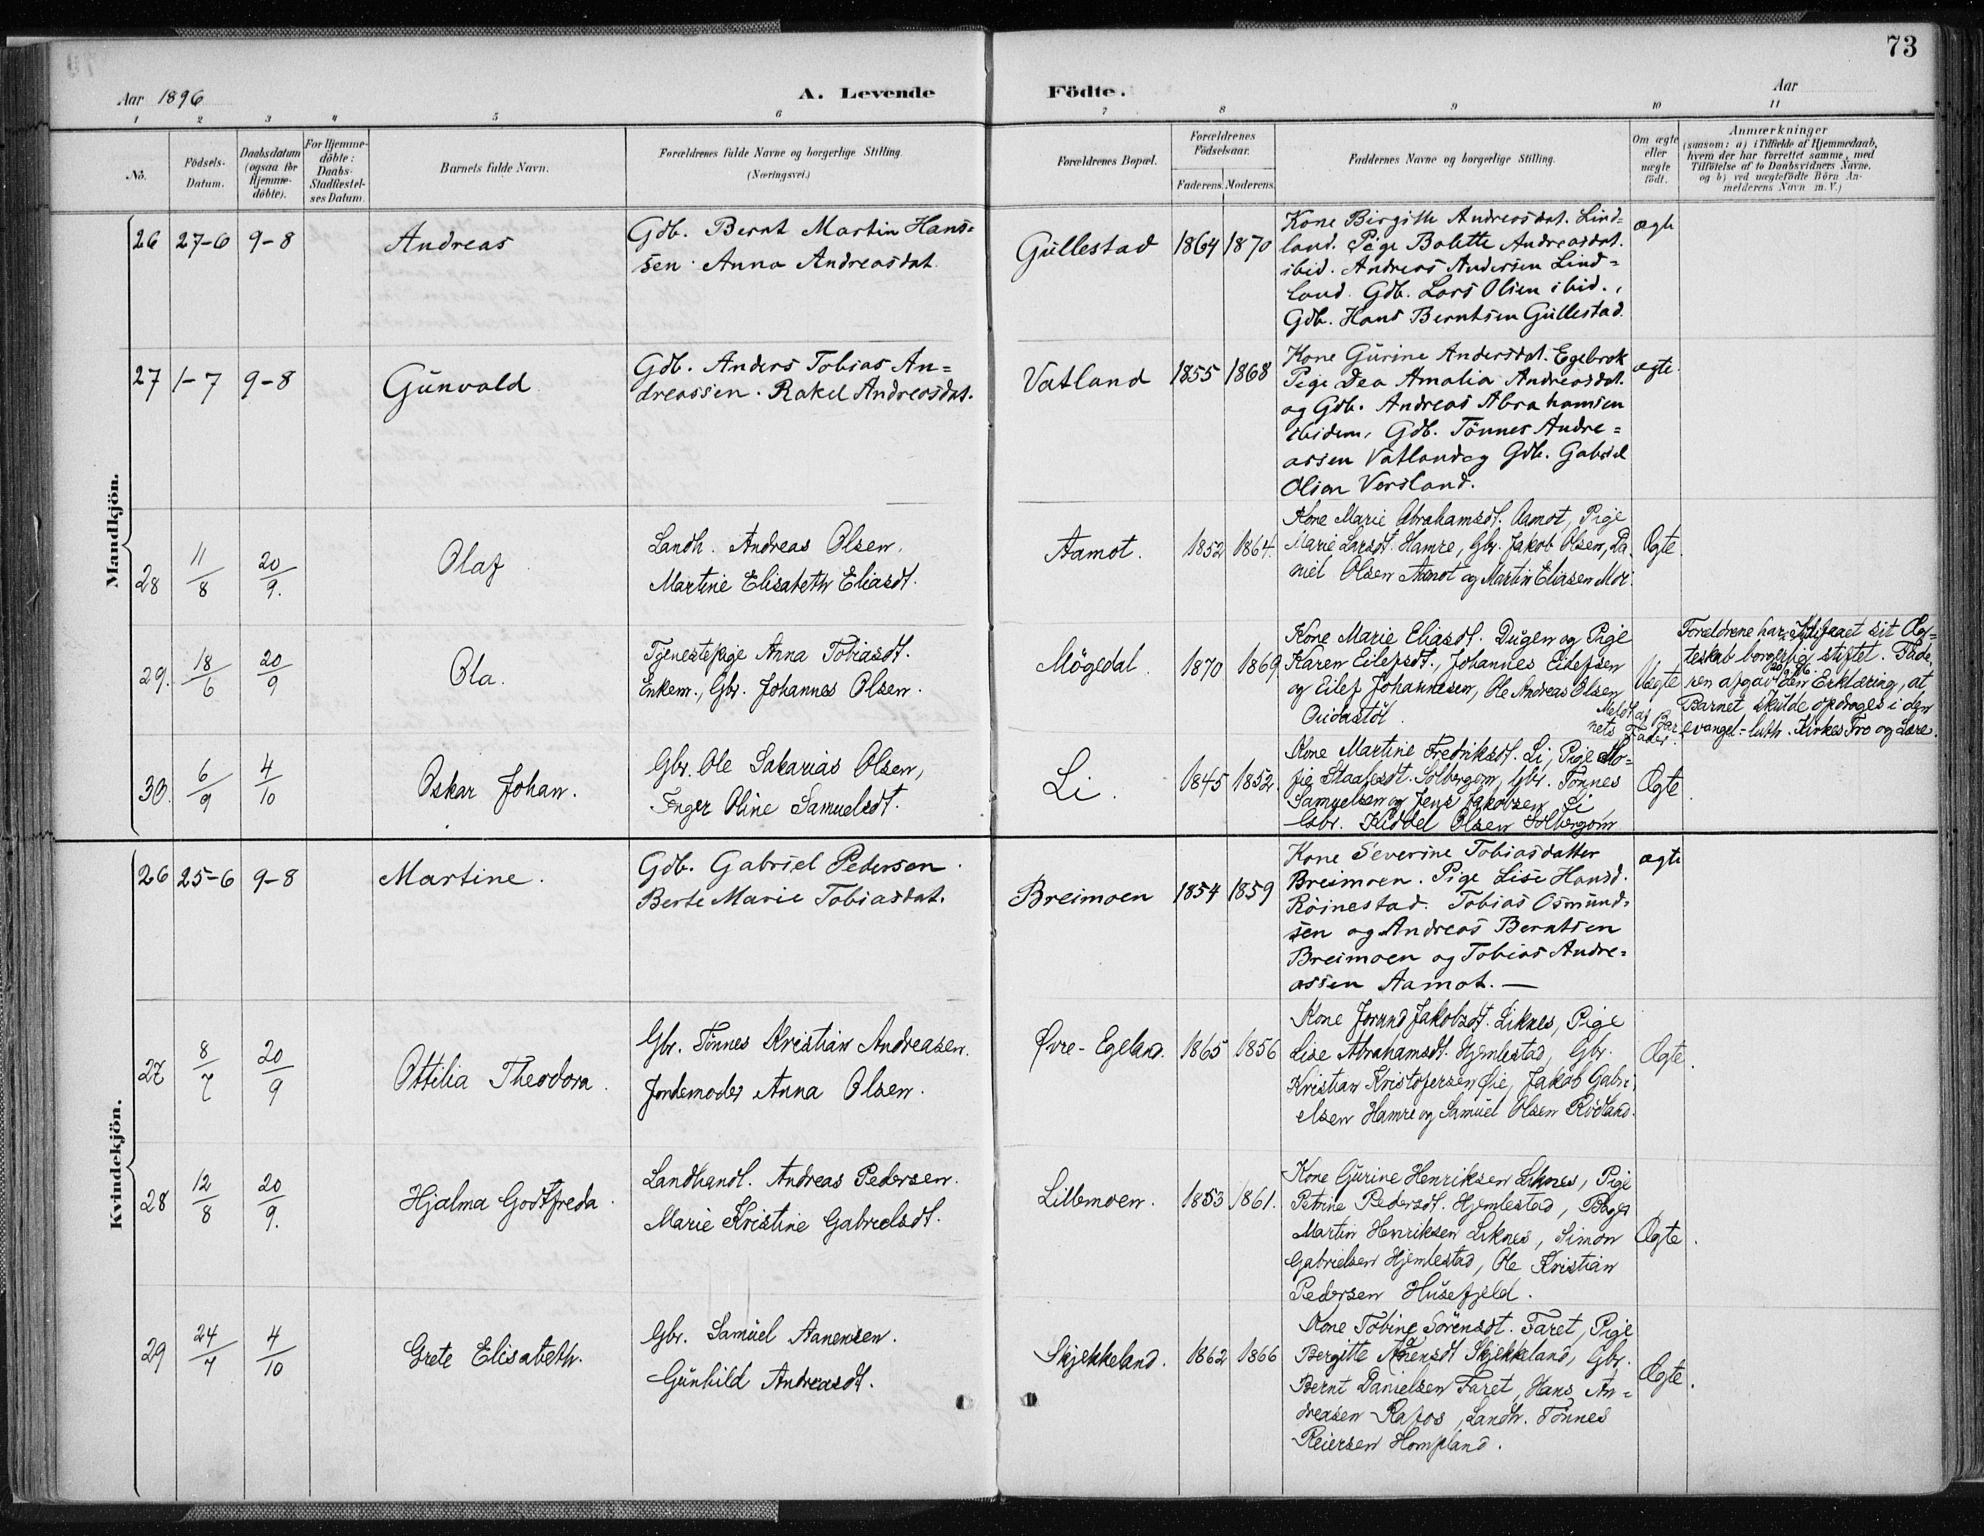 73
Aar 1896
A. Levende
Födte.
Aar
1 2 3 4 5 6 7 8 9 10 11
No.
Födsels-
Datum.
Daabsdatum
(ogsaa for
Hjemme-
döbte).
For Hjemme-
döbte:
Daabs-
Stadfæstel-
ses Datum.
Barnets fulde Navn.
Forældrenes fulde Navne og borgerlige Stilling.
(Næringsvei.)
Forældrenes Bopæl.
Forældrenes
Födselsaar.
Faderens. Moderens.
Faddernes Navne og borgerlige Stilling.
Om ægte
eller
uægte
født.
Anmærkninger
(saasom: a) i Tilfælde af Hjemmedaab,
hvem der har forrettet samme, med
Tilföielse af to Daabsvidners Navne,
og b) ved uægtefödte Börn An-
melderens Navn m. V.)
Mandkjön.
26 27-6 9-8
Andreas
Gdb. Bernt Martin Hans=
sen. Anna Andreasdat.
Gullestad 1864 1870
Kone Birgitte Andreasdat. Lind=
land. Pige Bolette Andreasdat.
ibid. Andreas Andersen Lind=
land. Gdb. Lars Olsen ibid.,
Gdb. Hans Berntsen Gullestad.
ægte
27 1-7 9-8
Gunvald
Gdb. Anders Tobias An=
dreassen. Rakel Andreasdat.
Vatland 1855 1868
Kone Gurine Andersdat. Egebrok
Pige Dea Amalia Andreasdat.
og Gdb. Andreas Abrahamsen
ibidem, Gdb. Tönnes Andre=
assen Vatland og Gdb. Gabriel
Olsen Versland.
ægte.
28 11/8 20/9.
Olaf
Landh. Andreas Olsen,
Martine Elisabeth Eliasdt.
Aamot. 1852 1864.
Kone Marie Abrahamsdt. Aamot, Pige
Marie Larsdt. Hamre, Gbr. Jakob Olsen, Da-
niel Olsen Aamot og Martin Eliasen Moi.
Ægte.
29. 18/6 20/9
Ola.
Tjenestepige Anna Tobiasdt.
Enkem., Gbr. Johannes Olsen.
Mögedal. 1870 1869
Kone Marie Eliasdt. Dugen og Pige
Karen Eilefsdt., Johannes Eilefsen
og Eilef Johannesen, Ole Andreas Olsen
Meldt af Bar
nets Fader.
Uægte
Forældrene har faaet sit Æg=
teskab borgerlig stiftet. Fade
ren afgav den Erklæring, at
Barnet skulde opdrages i den
evangel-luth. Kirkes Tro og Lære.
30. 6/9 4/10
Oskar Johan.
Gbr. Ole Sakarias Olsen,
Inger Oline Samuelsdt.
Li. 1845 1852.
Kone Martine Fredriksdt. Li, Pige So-
fie Staalesdt. Solbergom, Gbr. Tönnes
Samuelsen og Jens Jakobsen Li
Gbr. Kiddel Olsen Solbergom
Ægte.
Kvindekjön.
26 25-6 9-8
Martine.
Gdb. Gabriel Pedersen.
Berte Marie Tobiasdat.
Breimoen 1854 1859
Kone Severine Tobiasdatter
Breimoen. Pige Lise Hansd.
Röinestad. Tobias Osmund=
sen og Andreas Berntsen
Breimoen og Tobias Andre=
assen Aamot. —
ægte
27 8/7 20/9
Ottilia Theodora.
Gbr. Tönnes Kristian Andreasen.
Jordemoder Anna Olsen.
Øvre-Egeland. 1865 1856
Kone Jorund Jakobsdt. Liknes, Pige
Lise Abrahamsdt. Hjemlestad, Gbr.
Kristian Kristofersen Øie, Jakob Gabri
elsen Hamre og Samuel Olsen Rödland.
Ægte.
28 12/8 20/9.
Hjalma Godtfreda.
Landhandl. Andreas Pedersen.
Marie Kristine Gabrielsdt.
Lillemoen. 1853 1861.
Kone Gurine Henriksen Liknes, Pige
Petrine Pedersdt. Hjemlestad, Bager
Martin Henriksen Liknes, Simon
Gabrielsen Hjemlestad, Ole Kristian
Pedersen Husefjeld.
Ægte.
29 24/7 4/10
Grete Elisabeth.
Gbr. Samuel Aanensen.
Gunhild Andreasdt.
Skjekkeland. 1862 1866
Kone Tobine Sörensdt. Faret, Pige
Bergitte Aanensdt Skjekkeland, Gbr.
Bernt Danielsen Faret, Hans An=
dreasen Rafos, Landh. Tönnes
Reiersen Hompland.
Ægte.